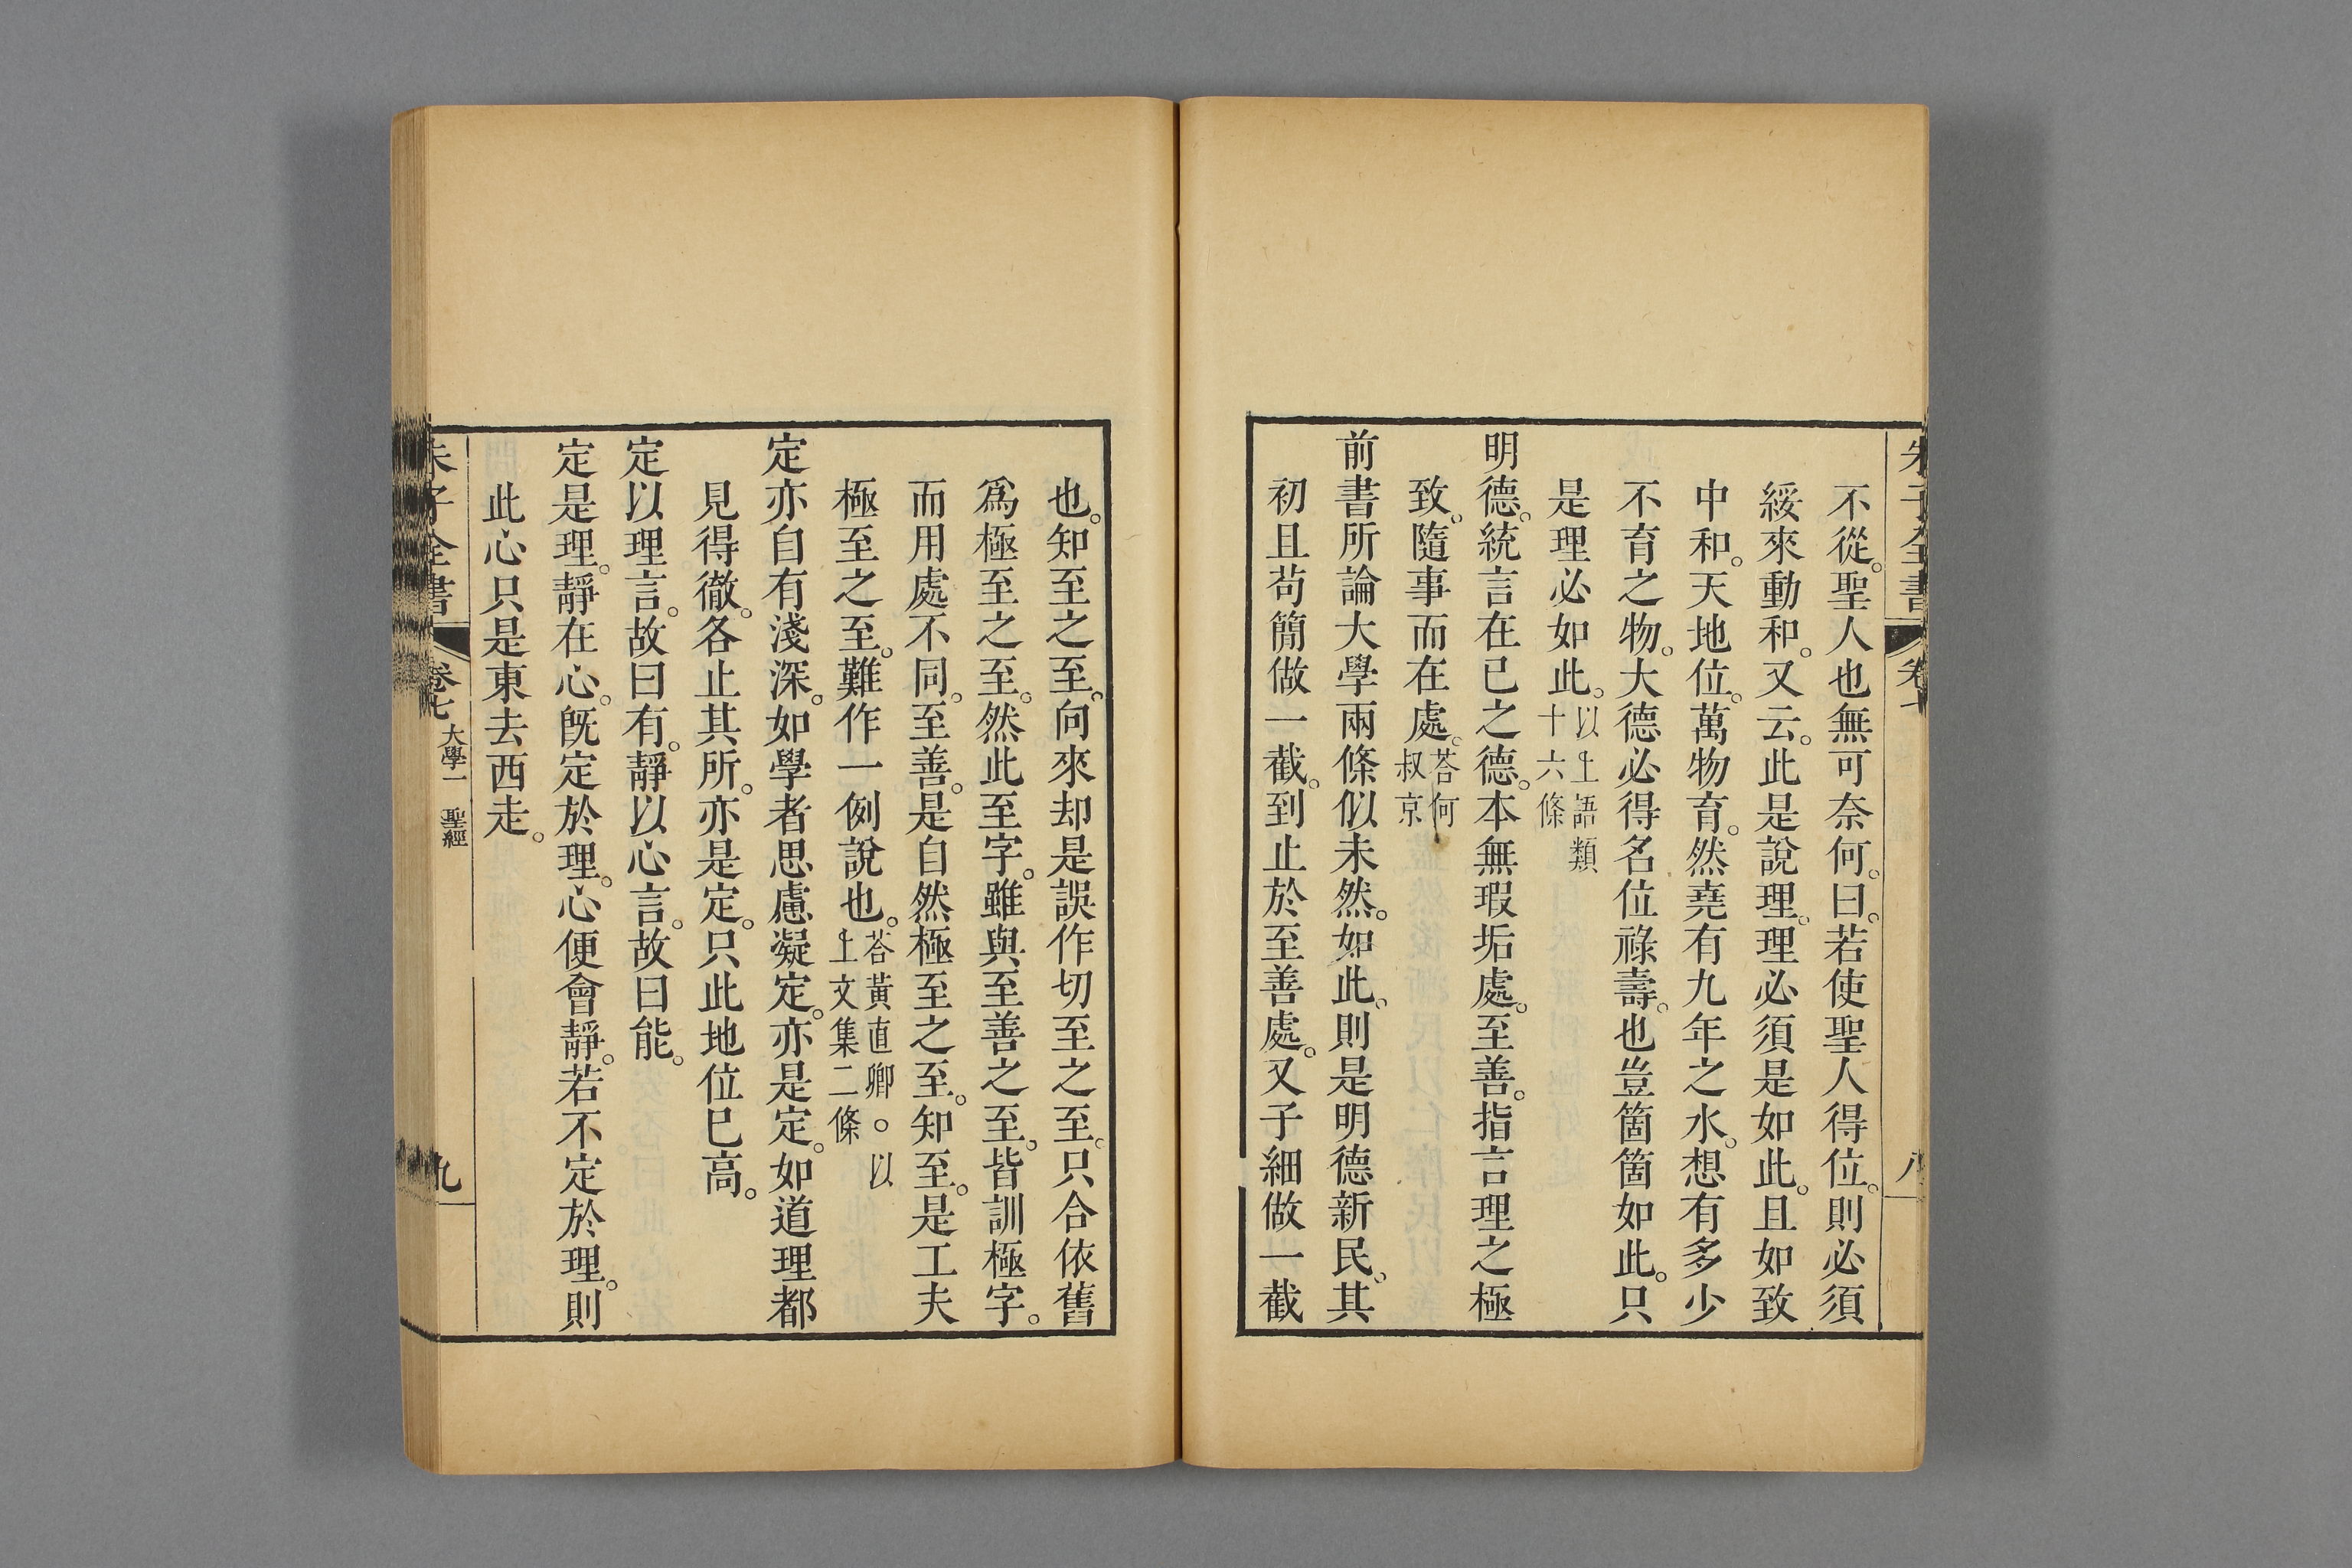 朱子全書 卷七 八
不從。聖人也無可奈何。曰。若使聖人得位。則必須
綏來動和。又云。此是說理。理必須是如此。且如致
中和。天地位。萬物育。然堯有九年之水。想有多少
不育之物。大德必得名位祿壽。也豈箇箇如此。只
是理必如此。以上語類十六條
明德。統言在已之德。本無瑕垢處。至善。指言理之極
致。隨事而在處。荅何叔京
前書所論大學兩條似未然。如此。則是明德新民。其
初且苟簡做一截。到止於至善處。又子細做一截
也。知至之至。向來却是誤作切至之至。只合依舊
爲極至之至。然此至字。雖與至善之至。皆訓極字。
而用處不同。至善。是自然極至之至。知至。是工夫
極至之至。難作一例說也。荅黃直卿。○以上文集二條
定亦自有淺深。如學者思慮凝定。亦是定。如道理都
見得徹。各止其所。亦是定。只此地位已高。
定以理言。故曰有。靜以心言。故曰能。
定是理。靜在心。旣定於理。心便會靜。若不定於理。則
此心只是東去西走。
朱子全書 卷七 大學一 聖經 九